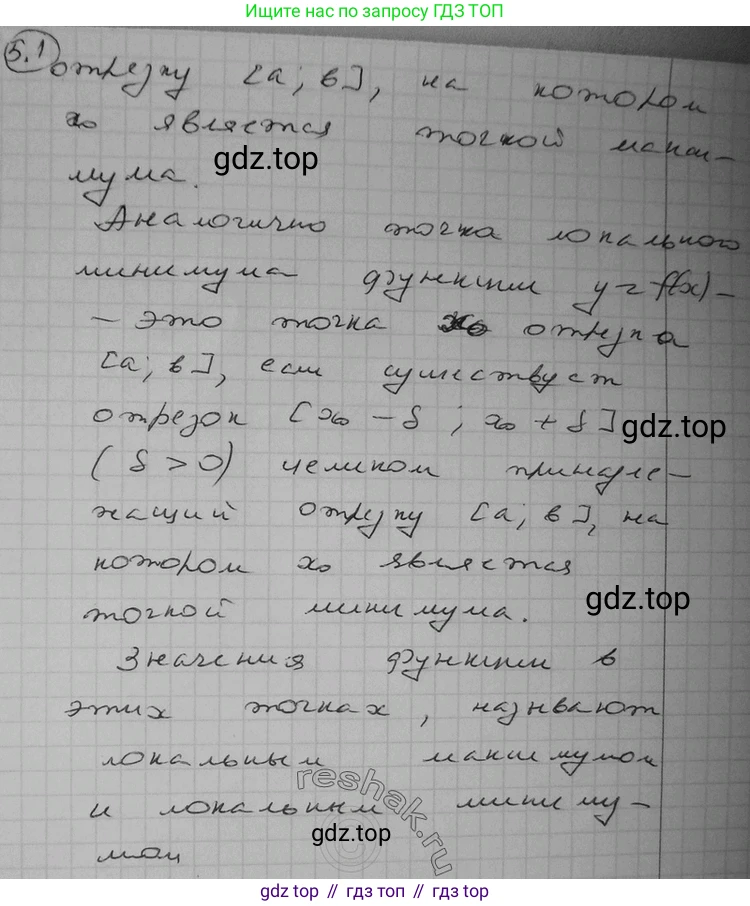 Ищите нас по запросу ГДЗ ТОП
5.1
отрезку [a; b], на котором
x₀ является точкой макси-
gdz.top
мума.
Аналогично точка локального
минимума функции y = f(x) –
– это точка x₀ отрезка
[a; b], если существует
отрезок [x₀ - δ; x₀ + δ]
gdz.top
(δ > 0) целиком принадле-
жащий отрезку [a; b], на
котором x₀ является
gdz.top
точкой минимума.
Значения функции в
этих точках, называют
локальным максимумом
reshak.ru
и локальным миниму-
gdz.top
мом
gdz.top // гдз топ // gdz top